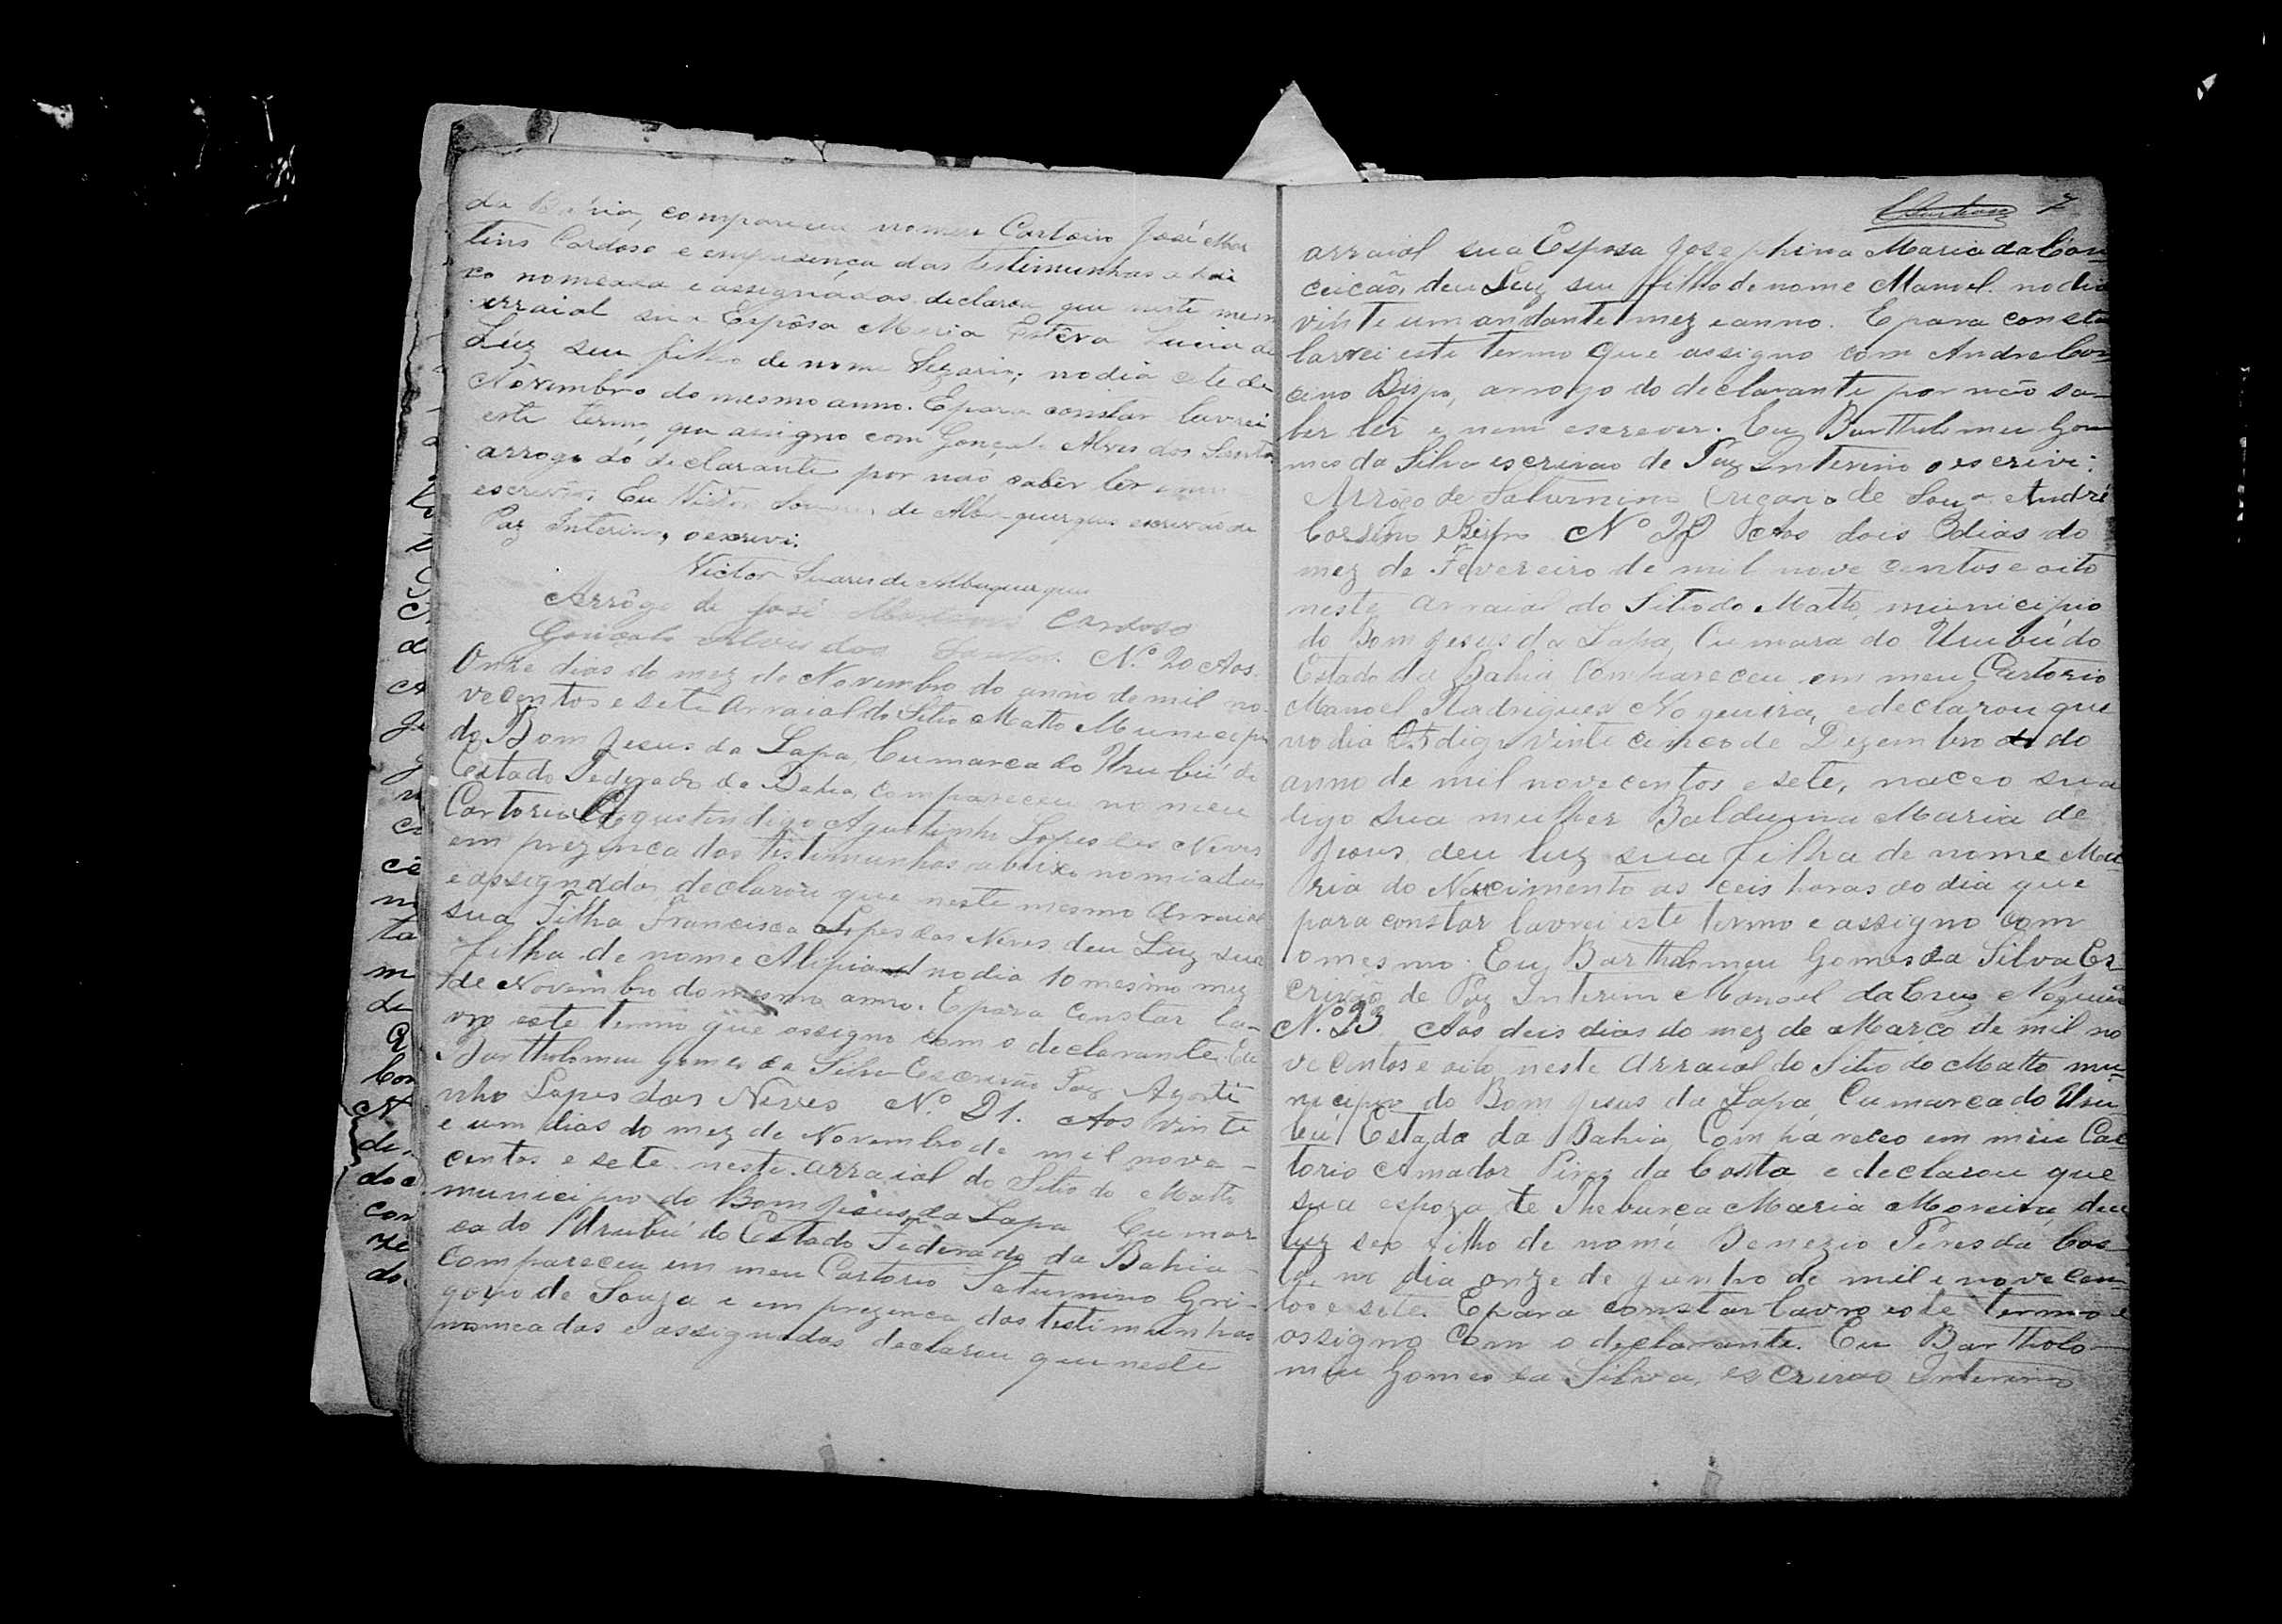 da Bahia, compareceu no meu Cartorio José Mar
tins Cardoso e em presença das testimunhas abai
xo nomeada e assignadas declarou que neste mesm
arraial sua Espôsa Maria Lucia de
Lúz seu filho de nome Cezario; no dia sete de
Nôvembro do mesmo anno. E para constar lavrei
este termo, que assigno com Gonçalo Alves dos Santos
arrogo do declarante por não saber lêr e nem
escrever. Eu Victor Soares de Albuquerque escrivão de
Paz Interino, o escrevi.
Victor Soares de Albuquerque
Arrôgo de José Martins Cardoso
Gonçalo Alves dos Santos. Nº 20 Aos
Onze dias do mez de Novembro do anno de mil no-
vecentos e sete Arraial do Sitio Matto Municipi
do Bom Jesus da Lapa, Cumarca do Urubú do
Estado Federado da Bahia, compareceu no meu
Cartorio Agustin digo Agustinho Lopes das Neves
em prezença das tistimunhas abaixo nomiadas
e assignadas, declarou que neste mesmo Arraial
sua Filha Francisca Lopes das Neves deu Luz sua
filha de nome Alipia no dia 10 mesmo mez
de Novembro do mesmo anno. E para constar la-
vro este termo que assigno com o declarante, Eu
Bartholomeu Gomes da Silva Escrivão Paz Agosti
nho Lopes das Neves Nº 21. Aos vinte
e um dias do mez de Novembro de mil nove-
centos e sete neste arraial do Sitio do Matto
municipio do Bom Jesus da Lapa Cumar
ca do Urubú do Estado Federado da Bahia
compareceu em meu Cartorio Saturnino Gri-
gorio de Souza e em prezenca das testimunhas
nomeadas e assignadas declarou que neste
7
arraial sua Esposa Josephina Maria da Con
ceicão, deu Luz seu filho de nome Manoel no dia
vinte um andante mez e anno. E para consta
lavrei este termo que assigno com André Cor
cino Bispo, arrogo do declarante por não sa-
ber lêr e nem escrever. Eu Bartholomeu Go
mes da Silva escrivão de Paz Interino o escrivi:
Arrôgo de Saturnino de Souza André
Corsino Bispo Nº 22 Aos dois dias do
mez de Fevereiro de mil nove centos e oito
neste arraial do Sitio do Matto, municipio
do Bom Jesus da Lapa, Cumarca do Urubú do
Estado da Bahia Compareceu em meu Cartorio
Manoel Rodrigues Nogueira, e declarou que
no dia 25 digo vinte cinco de Dezembro do
anno de mil novecentos e sete, naceo sua
digo sua mulher Balduina Maria de
Jesus, deu luz sua filha de nome Ma
ria do Nacimento as ceis horas do dia que
para constar lavrei este termo e assigno com
o mesmo. Eu, Bartholomeu Gomes da Silva Es
crivão de Paz Interin Manoel da Cruz Nogueira
Nº 23 Aos deis dias do mez de Março de mil no
vecentos e oito, neste Arraial do Sitio do Matto mu-
nicipio do Bom Jesus da Lapa, Cumarca do Uru
bú Estado da Bahia, Compareceo em meu Car
torio Amador Pires da Costa e declarou que
sua espoza Maria Moreira, deu
luz seo filho de nome Benezio Pires da Cos
ta, no dia onze de Junho de mil e nove cen
tos e sete. E para constar lavro este termo e
assigno com o declarante. Eu Bartholo-
meu Gomes da Silva, escrivão Interino